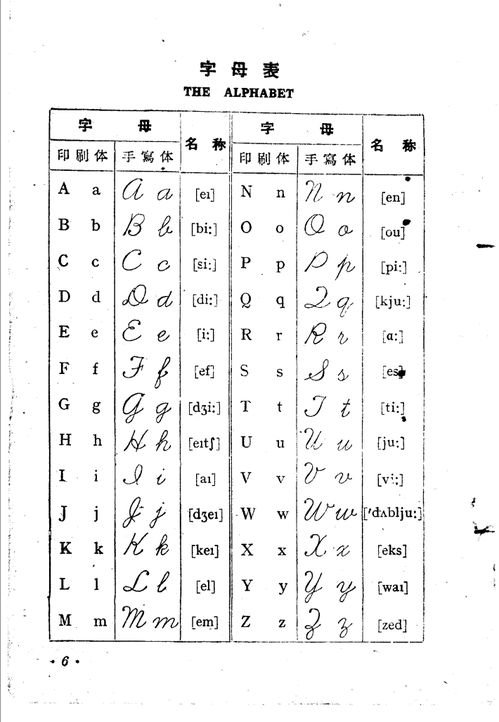 字母表
THE ALPHABET
字 母 名 称 字 母 名 称
印刷体 手寫体 印刷体 手寫体
A a A a [eɪ] N n N n [en]
B b B b [bi:] O o O o [ou]
C c C c [si:] P p P p [pi:]
D d D d [di:] Q q Q q [kju:]
E e E e [i:] R r R r [ɑ:]
F f F f [ef] S s S s [es]
G g G g [dʒi:] T t T t [ti:]
H h H h [eɪtʃ] U u U u [ju:]
I i I i [aɪ] V v V v [vi:]
J j J j [dʒeɪ] W w W w ['dʌblju:]
K k K k [keɪ] X x X x [eks]
L l L l [el] Y y Y y [waɪ]
M m M m [em] Z z Z z [zed]
· 6 ·